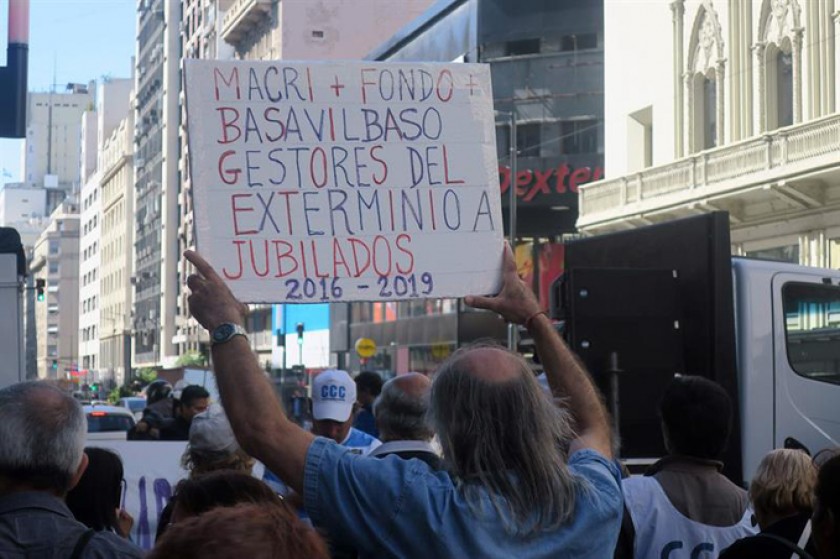 MACRI + FONDO +
BASAVILBASO
GESTORES DEL
EXTERMINIO A
JUBILADOS
2016 - 2019
Dexter
CCC
CCC